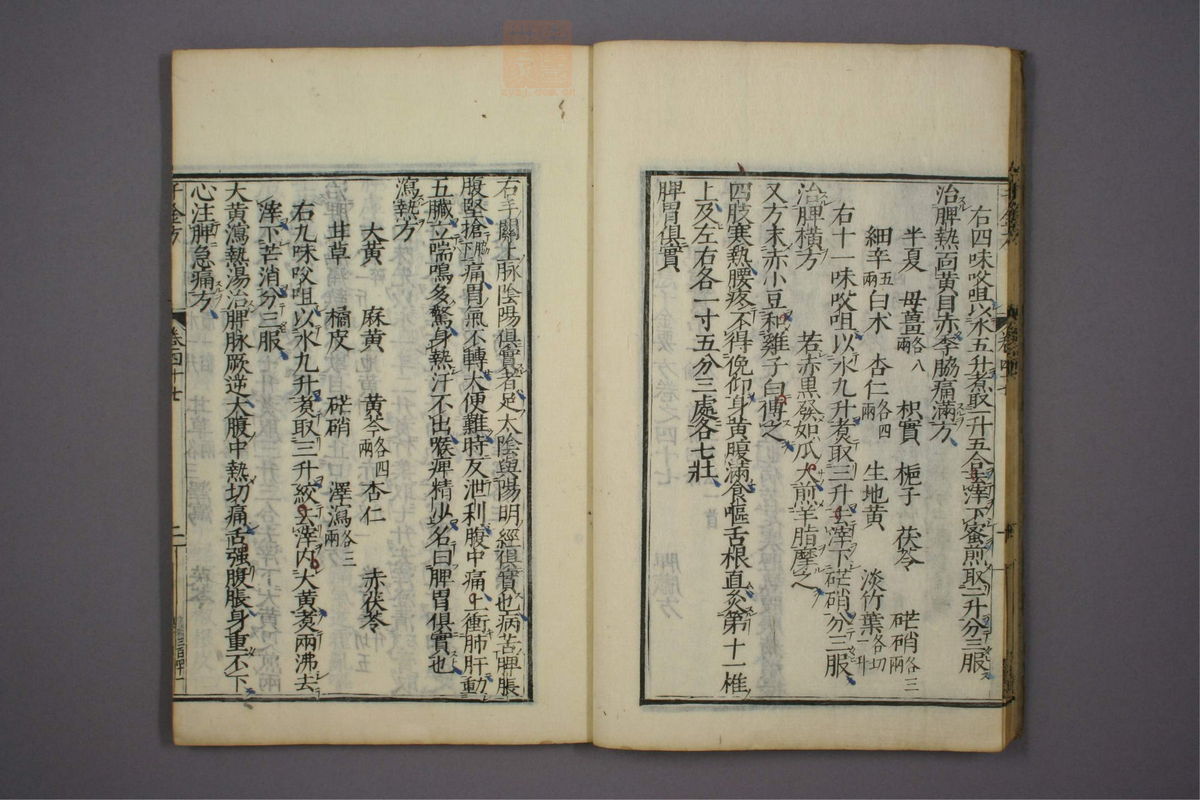 右四味㕮咀以水五升煮取一升五合去滓下蜜煎取一升分三服
治脾熱面黃目赤季脇痛滿方
半夏 母薑各八兩 枳實 梔子 茯苓 芒硝各三兩
細辛五兩 白术 杏仁各四兩 生地黃 淡竹葉各切一升
右十一味㕮咀以水九升煮取三升去滓下芒硝分三服
治脾橫方 若赤黑發如瓜大煎羊脂摩之
又方末赤小豆和雞子白傅之
四肢寒熱腰疼不得俛仰身黃腹滿食嘔舌根直灸第十一椎
上及左右各一寸五分三處各七壯
脾胃俱實
右手關上脉陰陽俱實者足太陰與陽明經俱實也病苦脾脹
腹堅搶脇下痛胃氣不轉大便難時反泄利腹中痛上衝肺肝動
五臟立喘鳴多驚身熱汗不出喉痺精少名曰脾胃俱實也
瀉熱方
大黃 麻黃 黃芩各四兩 杏仁 赤茯苓
甘草 橘皮 芒硝 澤瀉各三兩
右九味㕮咀以水九升煮取三升絞去滓内大黃煮兩沸去
滓下芒消分三服
大黃瀉熱湯治脾脉厥逆大腹中熱切痛舌强腹脹身重不下
心注脾急痛方
卷四十七